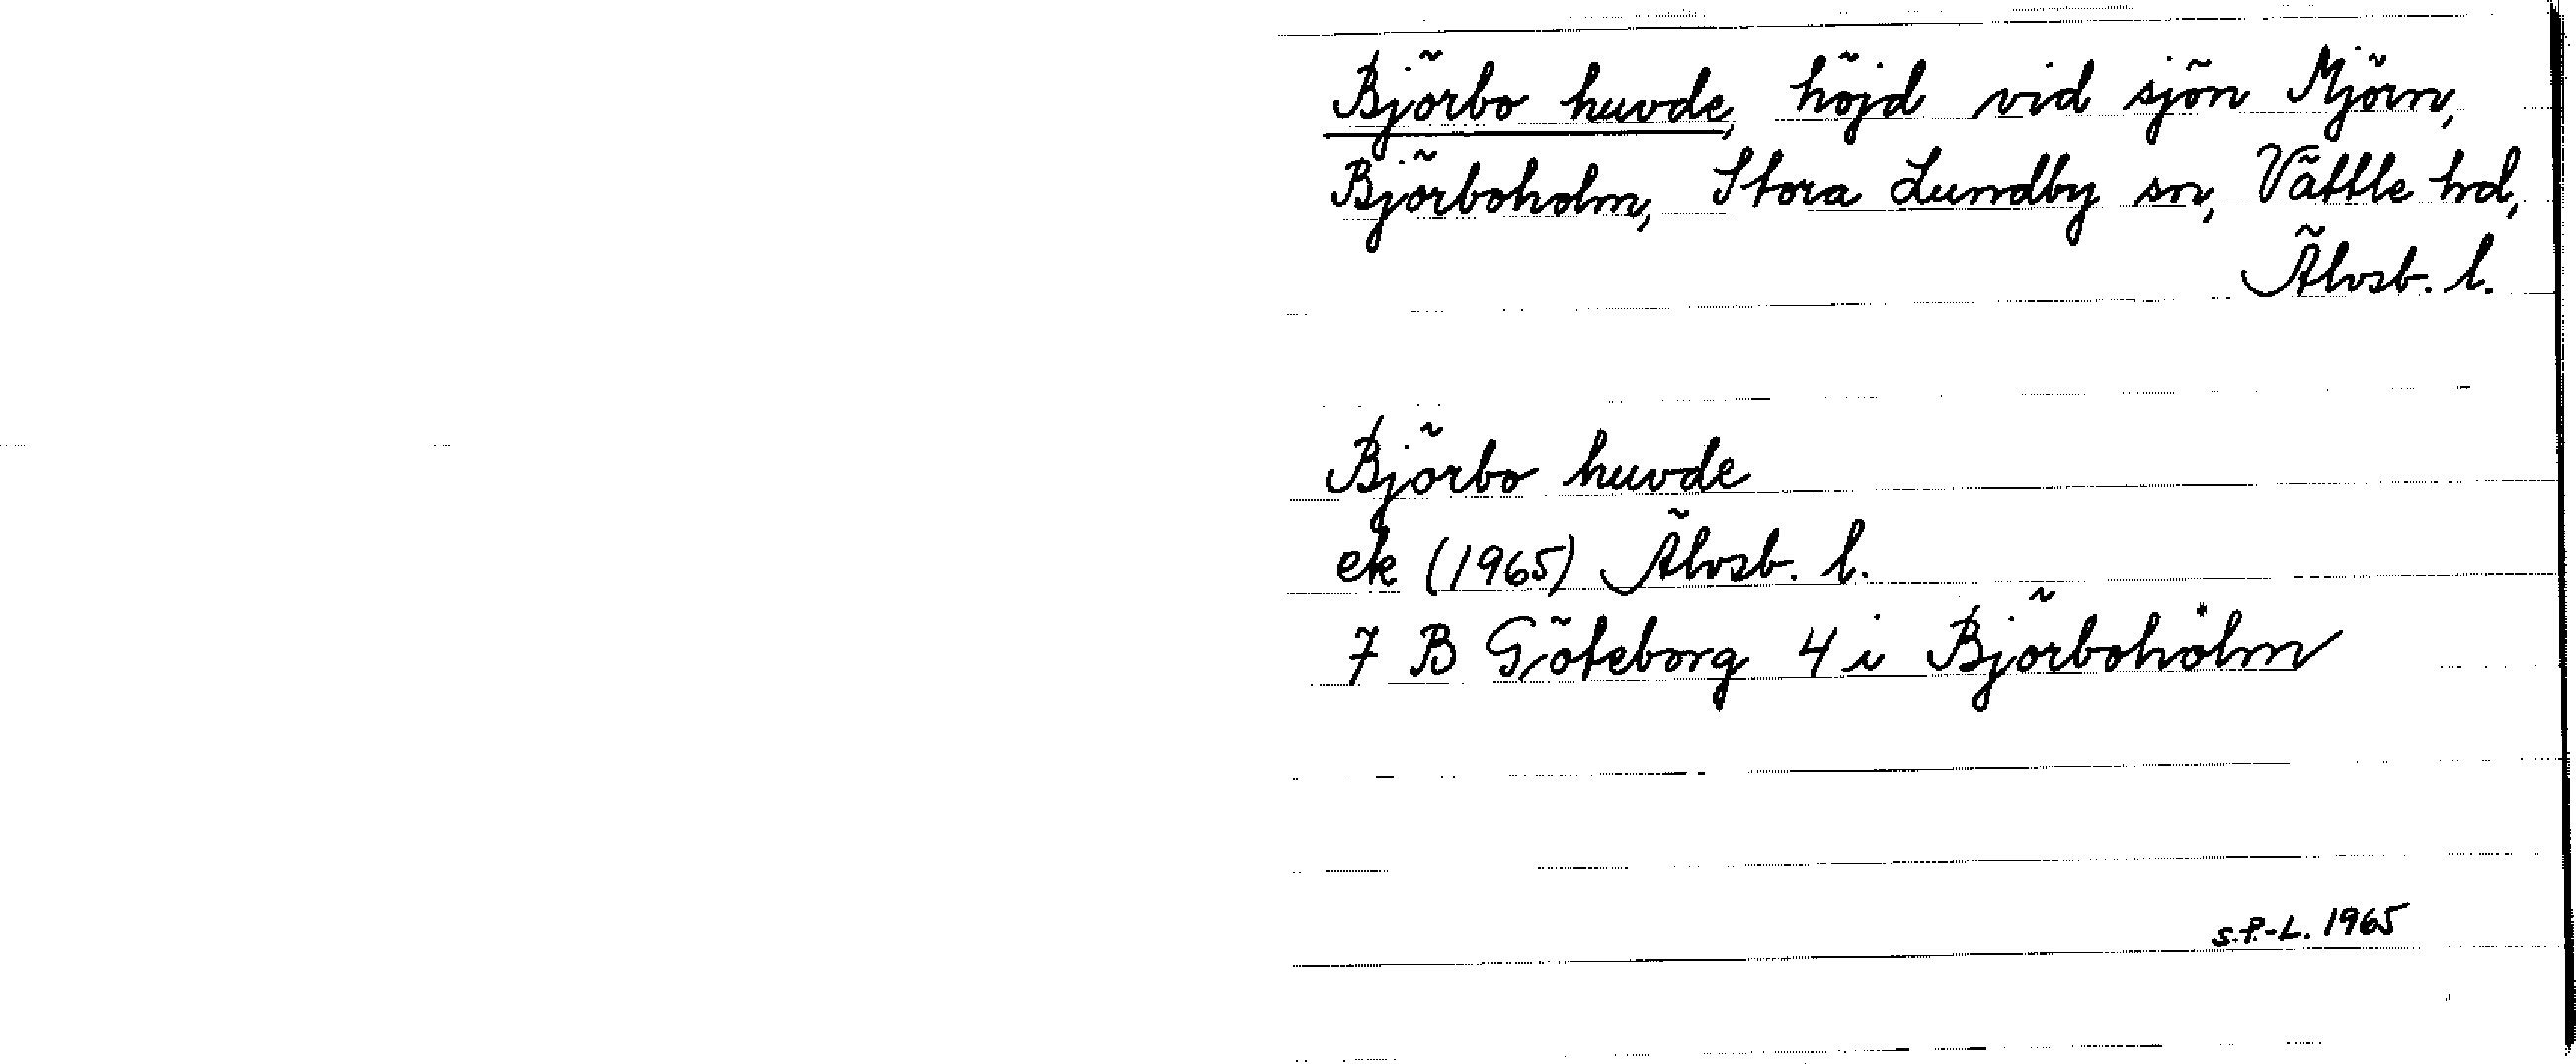 Björbo huvde, höjd vid sjön Mjörn,
Björboholm, Stora Lundby sn, Vättle hd,
Älvsb. l.
Björbo huvde
ek (1965) Älvsb. l.
7 B Göteborg 4 i Björboholm
S.P.-L. 1965